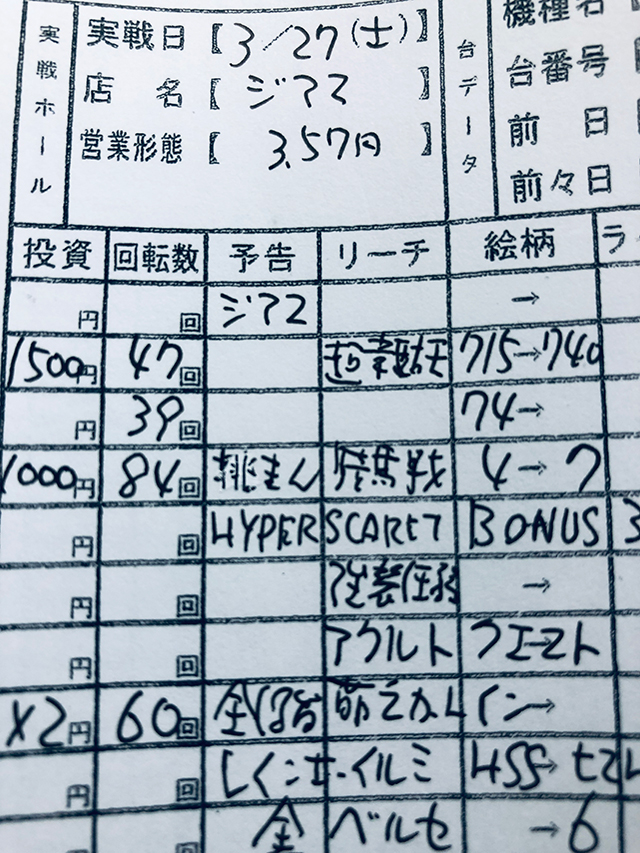 実戦ホール
実戦日【3/27(土)】
店 名【ジアス】
営業形態【3.57円】
台データ
機種名
台番号
前 日
前々日
投資 回転数 予告 リーチ 絵柄
円 回 ジアス →
1500円 47回 715→740
円 39回 74→
1000円 84回 4→7
円 回 HYPER SCARET BONUS 3
円 回 →
円 回 アクルト クエスト
×2円 60回 →
円 回 イルミ HSS→
円 回 金 ベルセ →6